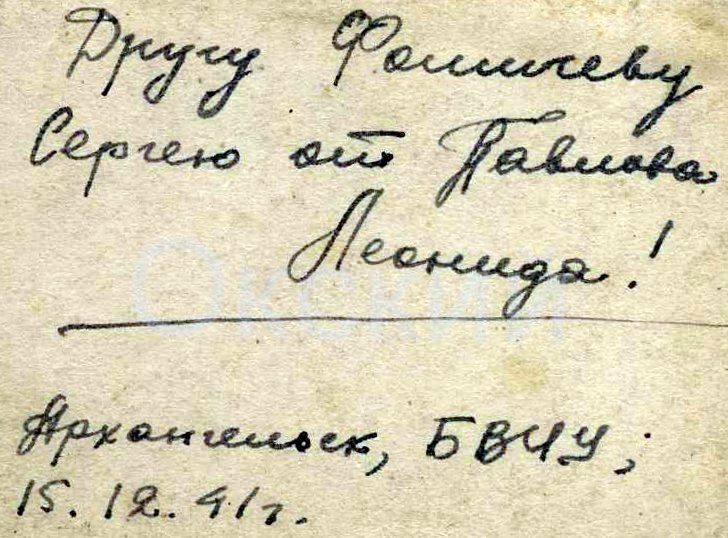 Другу Фомичеву
Сергею от Павлова
Леонида!
Окский
Архангельск, БВЧУ;
15.12.41г.